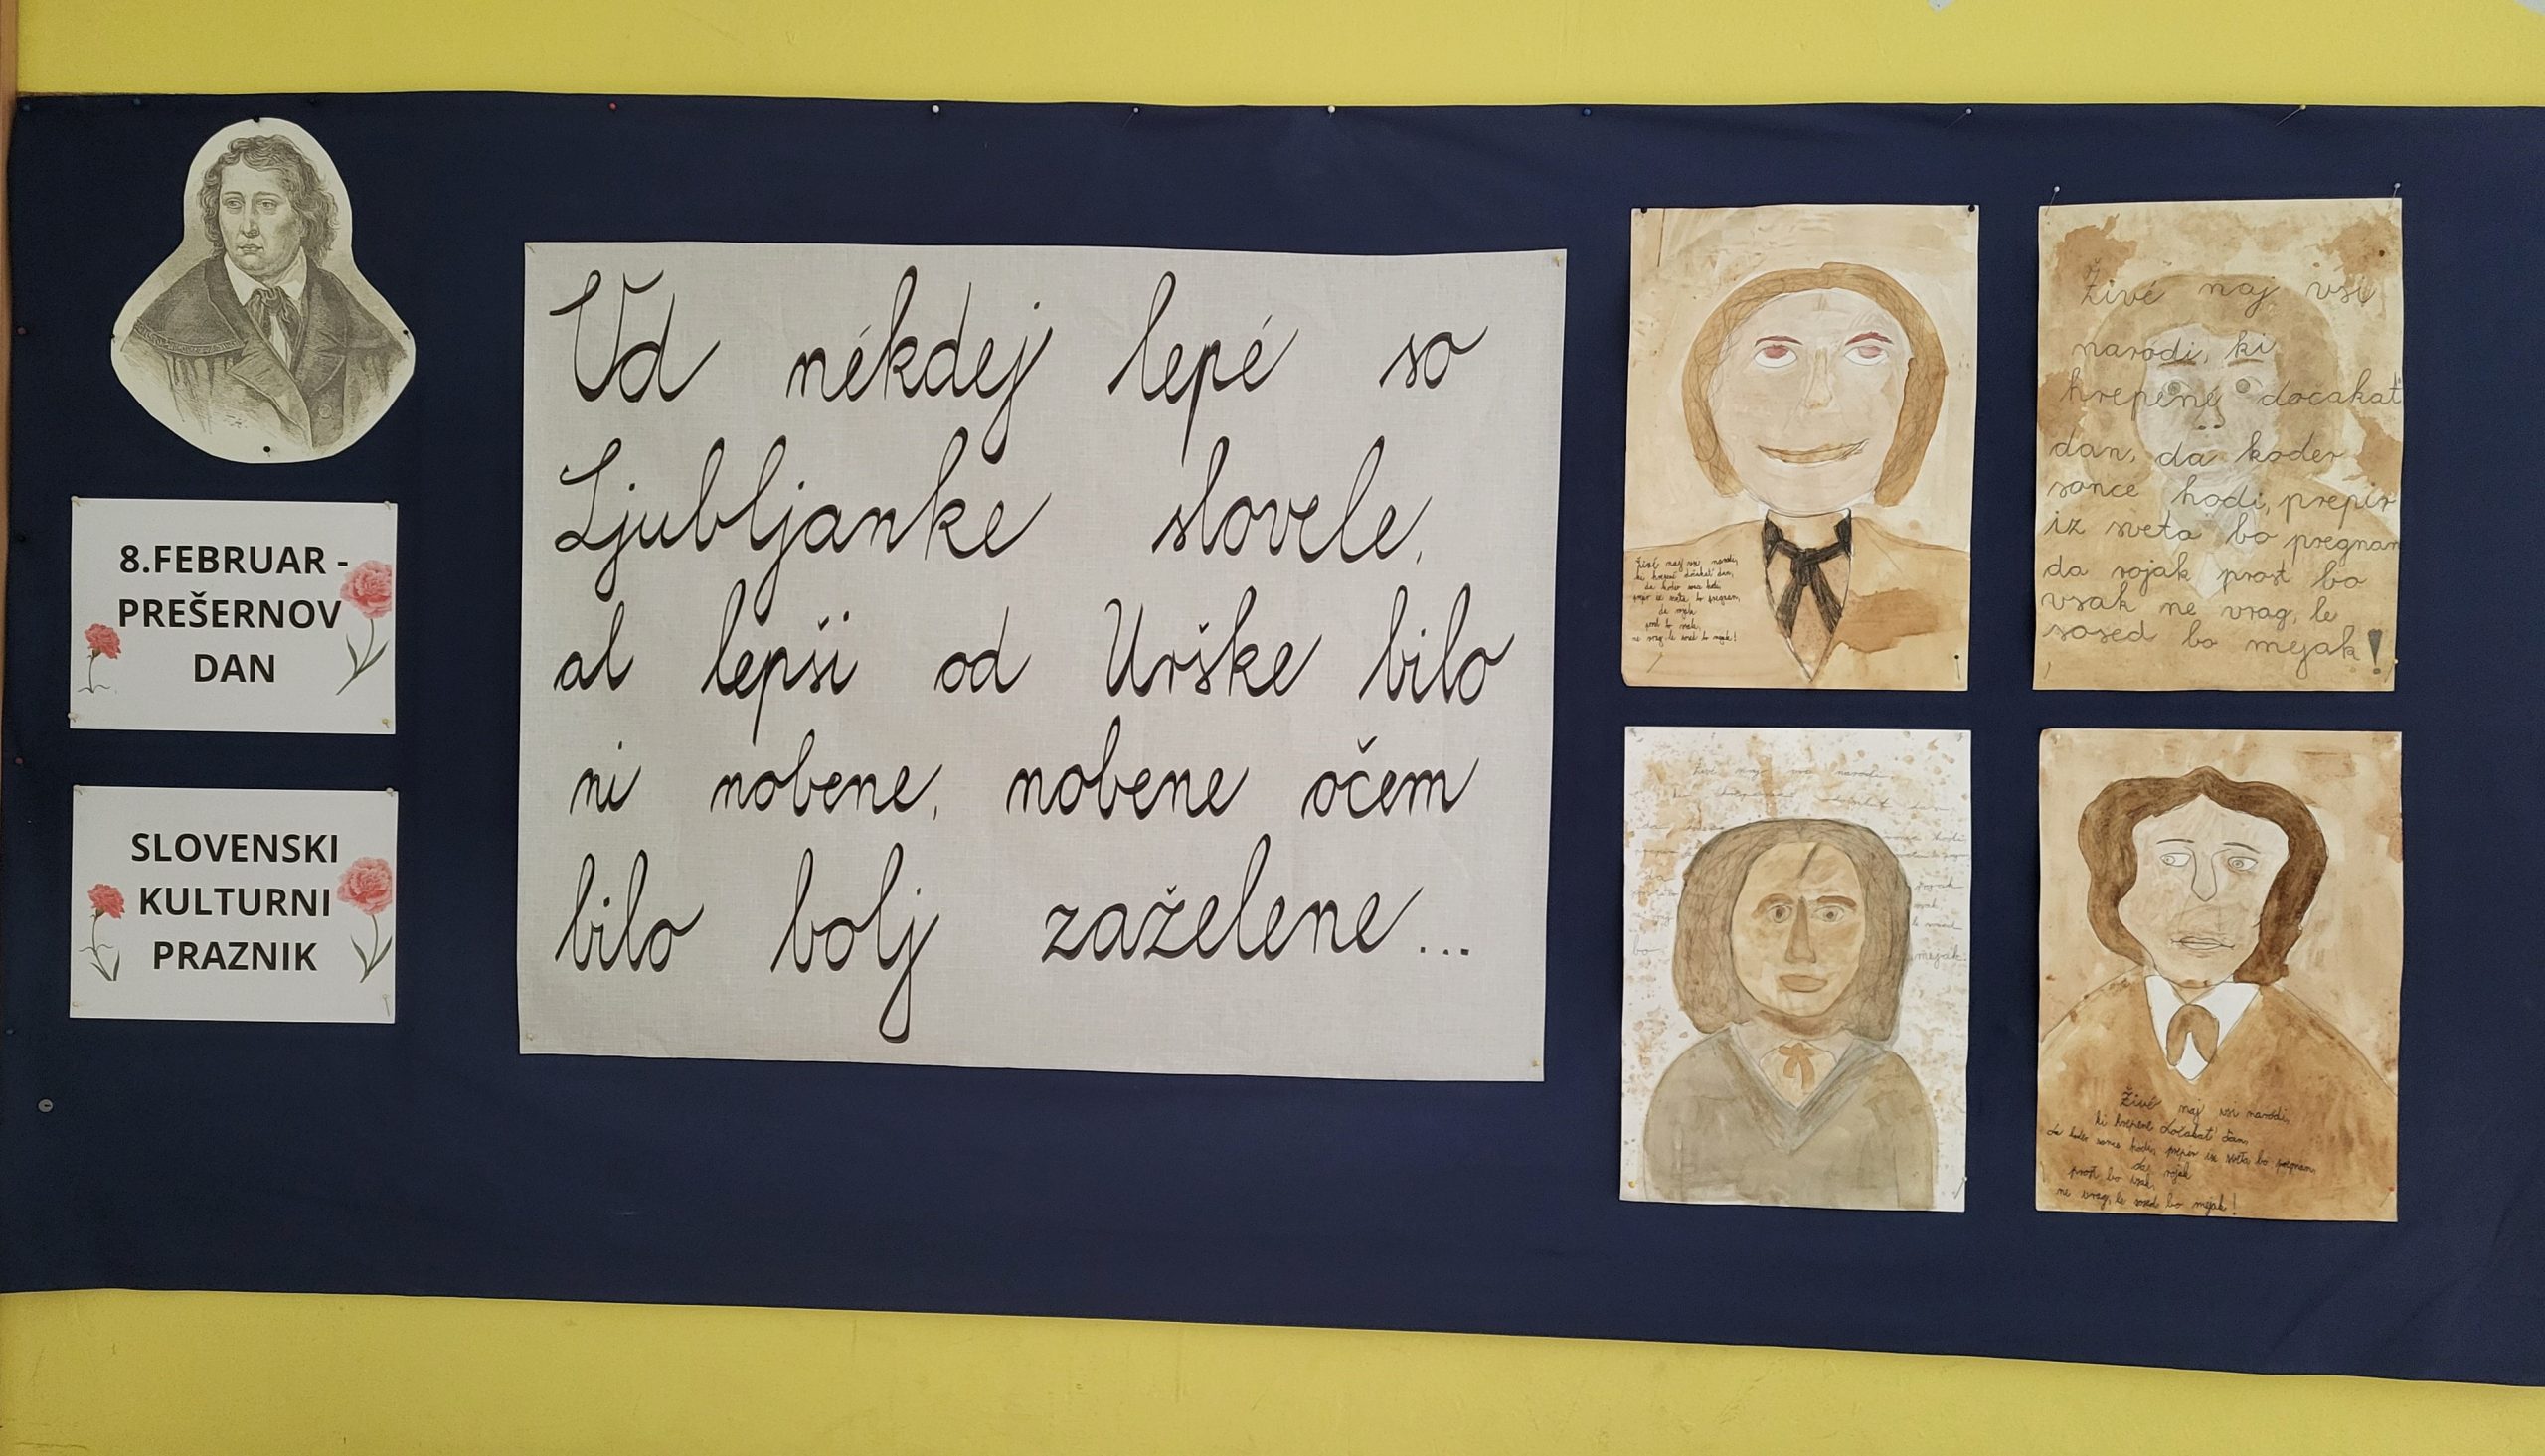 8.FEBRUAR -
PREŠERNOV
DAN
SLOVENSKI
KULTURNI
PRAZNIK
Od nékdej lepé so
Ljubljanke slovele,
al lepši od Urške bilo
ni nobene, nobene očem
bilo bolj zaželene...
živé naj vsi narodi,
ki hrepené dočakat' dan,
da koder sonce hodi,
prepir iz sveta bo pregnan,
da rojak
prost bo vsak,
ne vrag, le sosed bo mejak!
Živé naj vsi
narodi, ki
hrepené docakat'
dan, da koder
sonce hodi, prepir
iz sveta bo pregnan
da rojak prost bo
vsak ne vrag, le
sosed bo mejak!
živé naj vsi narodi
ki hrepené dočakat dan
bo mejak
Živé naj vsi narodi,
ki hrepene dočakat' dan,
da koder sonce hodi, prepir iz sveta bo pregnan,
da rojak
prost bo vsak,
ne vrag, le sosed bo mejak!